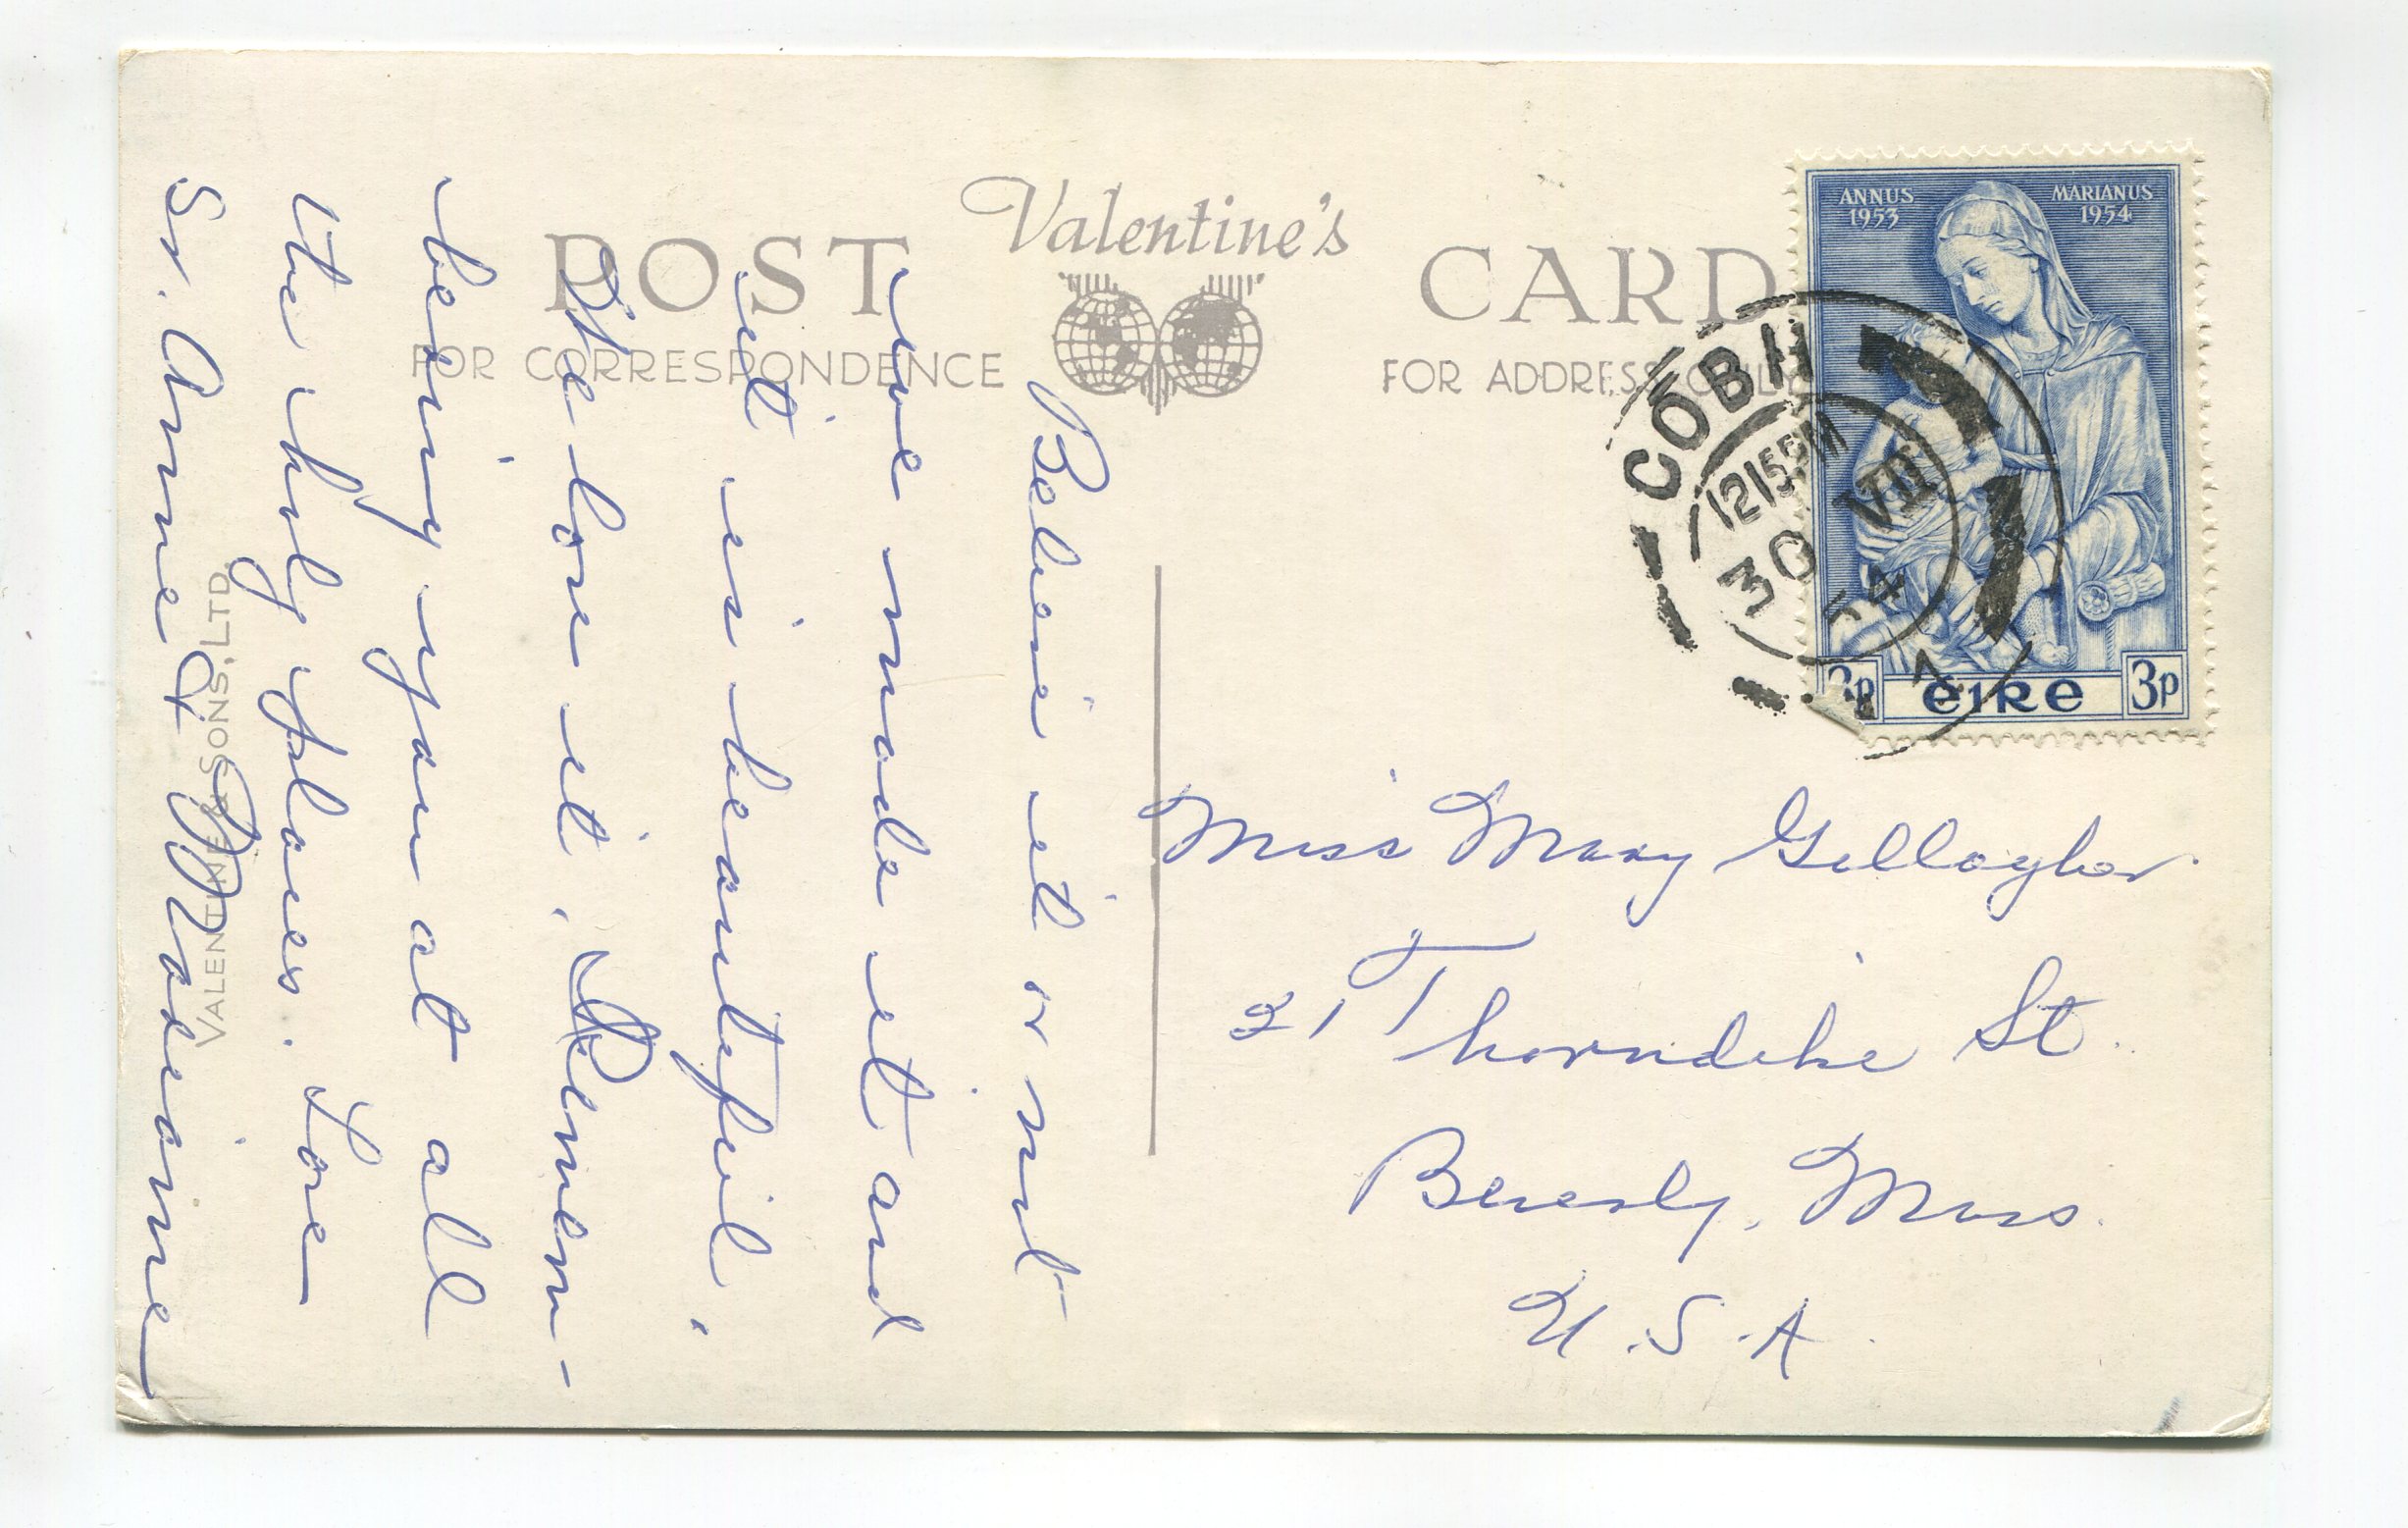 Valentine's
POST CARD
FOR CORRESPONDENCE
FOR ADDRESS ONLY
VALENTINE & SONS, LTD.
ANNUS 1953
MARIANUS 1954
3p ÉIRE 3p
CÓBH
1215PM
30 VII
54
Believe it or not
we made it and
it is beautiful.
We love it. Remem-
bering you at all
the holy places. Love
Sr. Anne & Madeine
Miss Mary Gallagher
21 Thorndike St.
Beverly, Mass.
U.S.A.